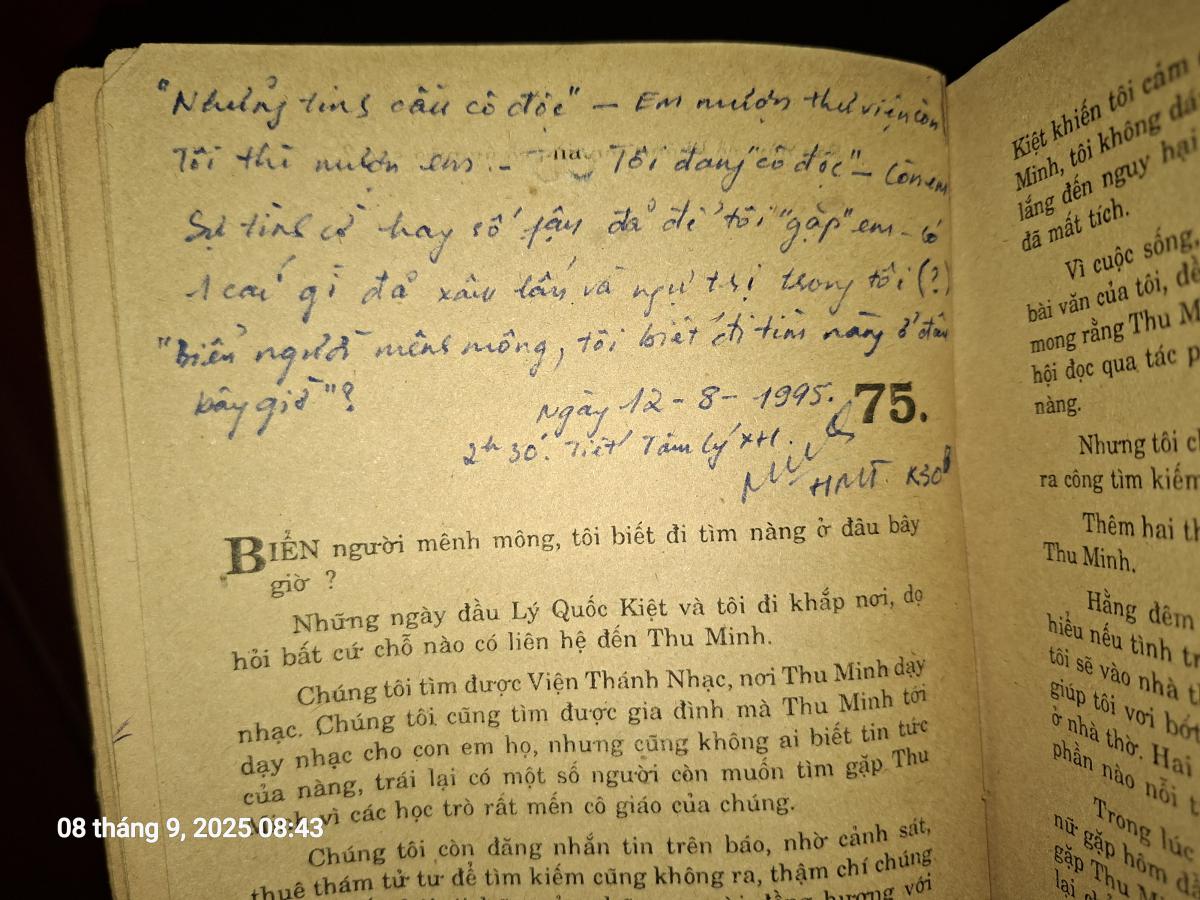 "Những tinh cầu cô độc" – Em mượn thư viện còn
Tôi thì mượn em. – Tôi đang "cô độc" – Còn em
Sự tình cờ hay số phận đã để tôi "gặp" em – có
1 cái gì đã xâm lấn và ngự trị trong tôi (?)
"Biển người mênh mông, tôi biết đi tìm nàng ở đâu
bây giờ"?
Ngày 12 - 8 - 1995.
75.
2h 30'. Tiết Tâm lý XH.
HMT K30
BIỂN người mênh mông, tôi biết đi tìm nàng ở đâu bây
giờ ?
Những ngày đầu Lý Quốc Kiệt và tôi đi khắp nơi, dọ
hỏi bất cứ chỗ nào có liên hệ đến Thu Minh.
Chúng tôi tìm được Viện Thánh Nhạc, nơi Thu Minh dạy
nhạc. Chúng tôi cũng tìm được gia đình mà Thu Minh tới
dạy nhạc cho con em họ, nhưng cũng không ai biết tin tức
của nàng, trái lại có một số người còn muốn tìm gặp Thu
Minh vì các học trò rất mến cô giáo của chúng.
Chúng tôi còn đăng nhắn tin trên báo, nhờ cảnh sát,
thuê thám tử tư để tìm kiếm cũng không ra, thậm chí chúng
Kiệt khiến tôi cảm
Minh, tôi không
lắng đến nguy hại
đã mất tích.
Vì cuộc sống,
bài văn của tôi,
mong rằng Thu M
hội đọc qua tác p
nàng.
Nhưng tôi c
ra công tìm kiếm
Thêm hai th
Thu Minh.
Hằng đêm
hiểu nếu tình tr
tôi sẽ vào nhà t
giúp tôi vơi bớt
ở nhà thờ. Hai
phần nào nỗi t
Trong lúc
nữ gặp hôm đ
gặp Thu M
08 tháng 9, 2025 08:43